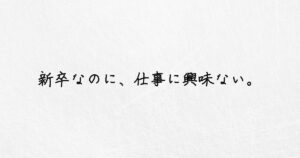 新卒なのに、仕事に興味ない。